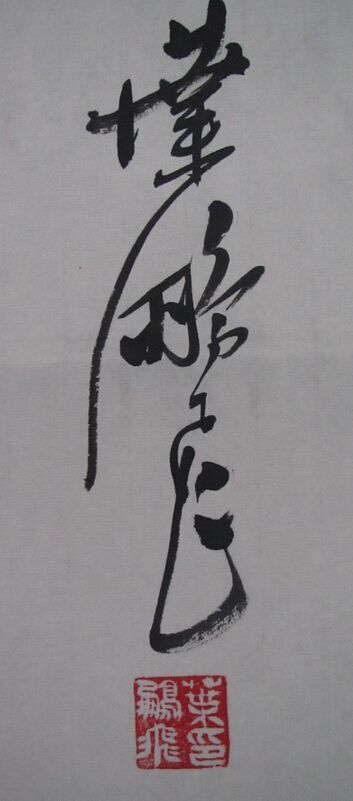 葉鵬飛
葉印
鵬飛